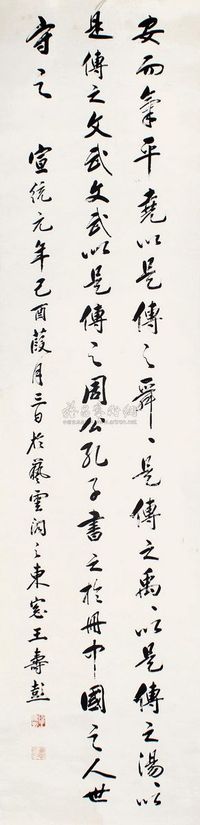 安而氣平堯以是傳之舜〻是傳之禹〻以是傳之湯以
是傳之文武文武以是傳之周公孔子書之於冊中國之人世
守之
宣統元年己酉葭月三日於藝雲洞之東窓王壽彭